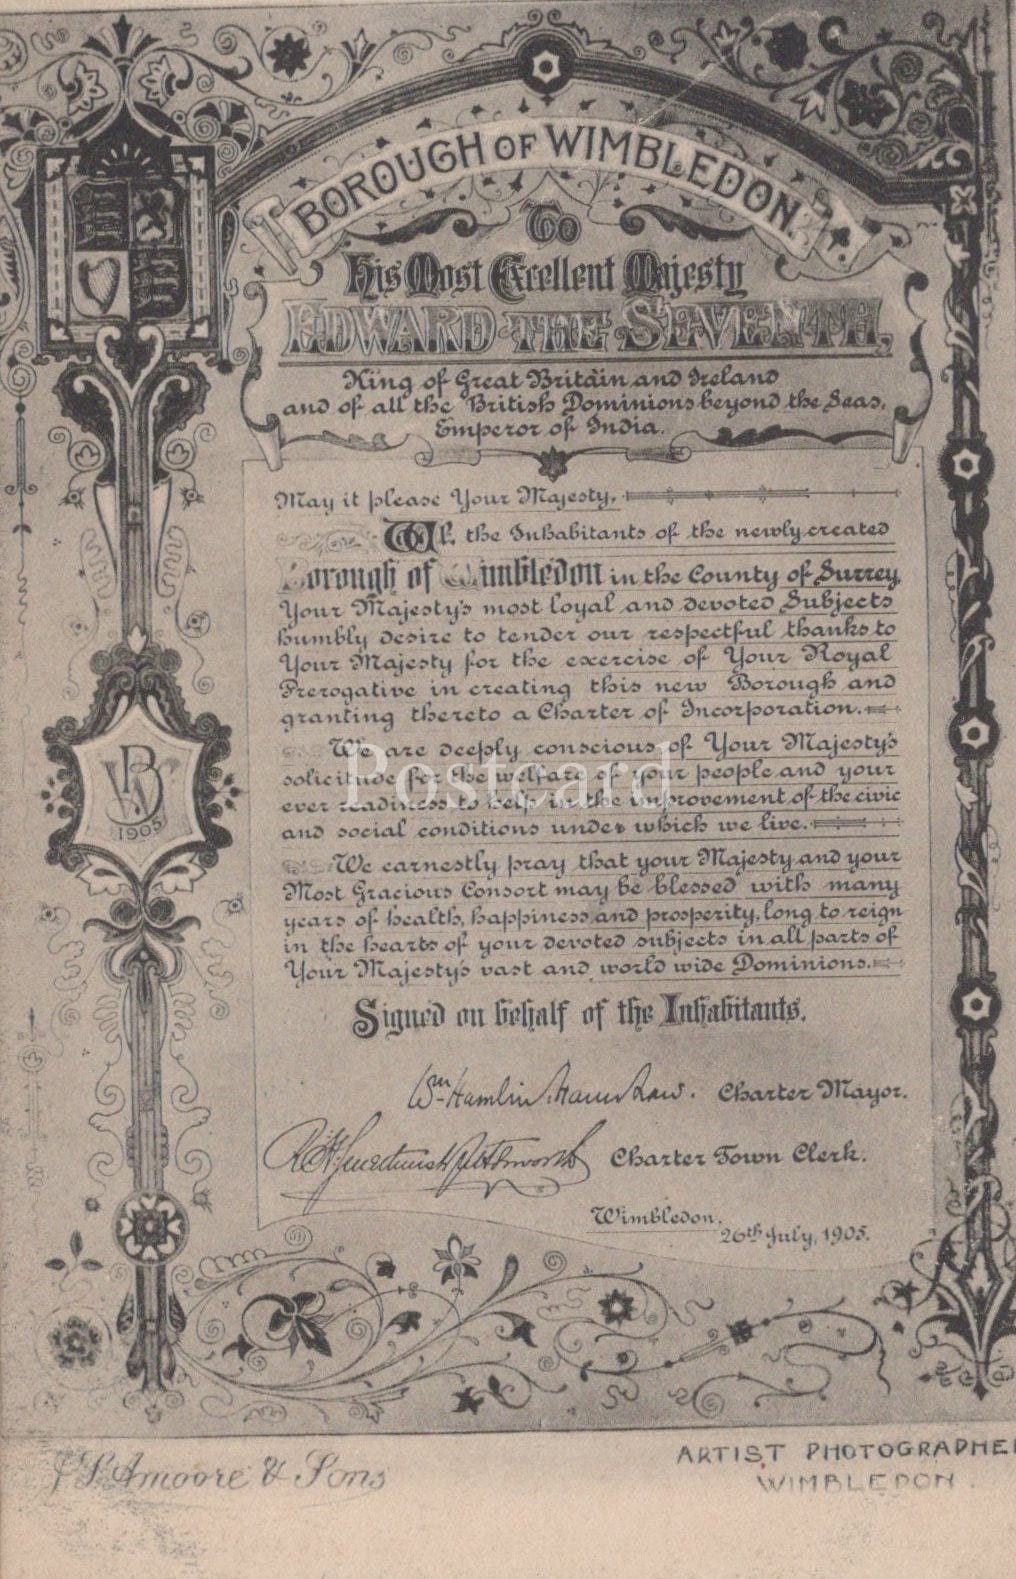 BOROUGH OF WIMBLEDON
To
His Most Excellent Majesty
EDWARD THE SEVENTH,
King of Great Britain and Ireland
and of all the British Dominions beyond the Seas,
Emperor of India.
May it please Your Majesty,
WE the Inhabitants of the newly created
Borough of Wimbledon in the County of Surrey
Your Majesty's most loyal and devoted Subjects
humbly desire to tender our respectful thanks to
Your Majesty for the exercise of Your Royal
Prerogative in creating this new Borough and
granting thereto a Charter of Incorporation.
We are deeply conscious of Your Majesty's
solicitude for the welfare of your people and your
ever readiness to help in the improvement of the civic
and social conditions under which we live.
We earnestly pray that your Majesty and your
Most Gracious Consort may be blessed with many
years of health, happiness and prosperity, long to reign
in the hearts of your devoted subjects in all parts of
Your Majesty's vast and world wide Dominions.
Signed on behalf of the Inhabitants.
Wm Hamlin Charter Mayor.
Charter Town Clerk.
Wimbledon.
26th July, 1905.
1905
Postcard
Amoore & Sons
ARTIST PHOTOGRAPHE
WIMBLEDON.